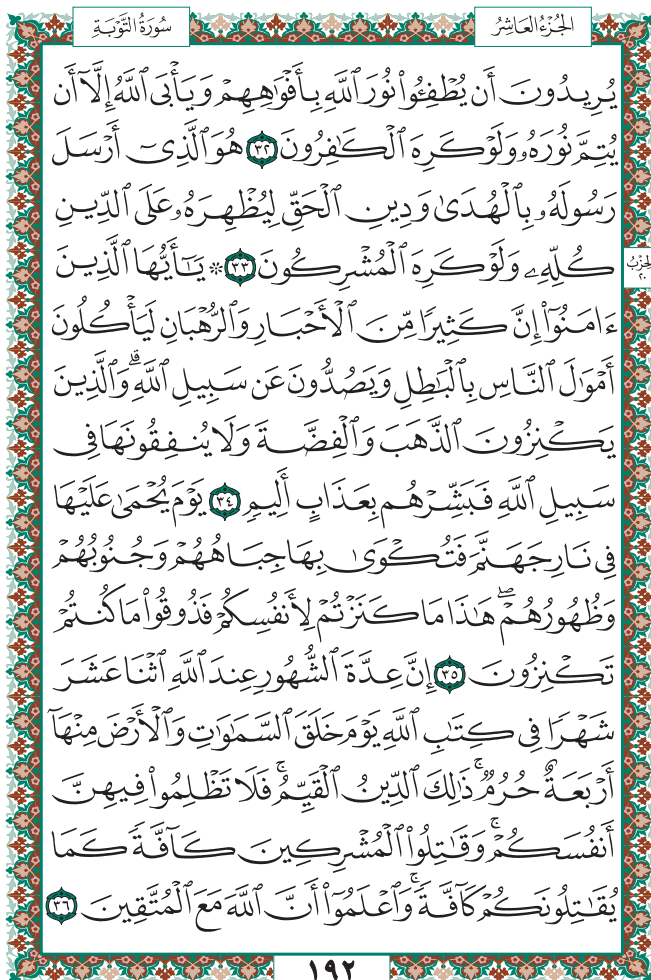 سُورَةُ التَّوْبَةِ
الجُزْءُ العَاشِرُ
يُرِيدُونَ أَن يُطْفِـُٔوا۟ نُورَ ٱللَّهِ بِأَفْوَٰهِهِمْ وَيَأْبَى ٱللَّهُ إِلَّآ أَن
يُتِمَّ نُورَهُۥ وَلَوْ كَرِهَ ٱلْكَٰفِرُونَ ٣٢ هُوَ ٱلَّذِىٓ أَرْسَلَ
رَسُولَهُۥ بِٱلْهُدَىٰ وَدِينِ ٱلْحَقِّ لِيُظْهِرَهُۥ عَلَى ٱلدِّينِ
كُلِّهِۦ وَلَوْ كَرِهَ ٱلْمُشْرِكُونَ ٣٣ ۞ يَٰٓأَيُّهَا ٱلَّذِينَ
الحِزْبُ
٢٠
ءَامَنُوٓا۟ إِنَّ كَثِيرًا مِّنَ ٱلْأَحْبَارِ وَٱلرُّهْبَانِ لَيَأْكُلُونَ
أَمْوَٰلَ ٱلنَّاسِ بِٱلْبَٰطِلِ وَيَصُدُّونَ عَن سَبِيلِ ٱللَّهِ ۗ وَٱلَّذِينَ
يَكْنِزُونَ ٱلذَّهَبَ وَٱلْفِضَّةَ وَلَا يُنفِقُونَهَا فِى
سَبِيلِ ٱللَّهِ فَبَشِّرْهُم بِعَذَابٍ أَلِيمٍ ٣٤ يَوْمَ يُحْمَىٰ عَلَيْهَا
فِى نَارِ جَهَنَّمَ فَتُكْوَىٰ بِهَا جِبَاهُهُمْ وَجُنُوبُهُمْ
وَظُهُورُهُمْ ۖ هَٰذَا مَا كَنَزْتُمْ لِأَنفُسِكُمْ فَذُوقُوا۟ مَا كُنتُمْ
تَكْنِزُونَ ٣٥ إِنَّ عِدَّةَ ٱلشُّهُورِ عِندَ ٱللَّهِ ٱثْنَا عَشَرَ
شَهْرًا فِى كِتَٰبِ ٱللَّهِ يَوْمَ خَلَقَ ٱلسَّمَٰوَٰتِ وَٱلْأَرْضَ مِنْهَآ
أَرْبَعَةٌ حُرُمٌ ۚ ذَٰلِكَ ٱلدِّينُ ٱلْقَيِّمُ ۚ فَلَا تَظْلِمُوا۟ فِيهِنَّ
أَنفُسَكُمْ ۚ وَقَٰتِلُوا۟ ٱلْمُشْرِكِينَ كَآفَّةً كَمَا
يُقَٰتِلُونَكُمْ كَآفَّةً ۚ وَٱعْلَمُوٓا۟ أَنَّ ٱللَّهَ مَعَ ٱلْمُتَّقِينَ ٣٦
١٩٢